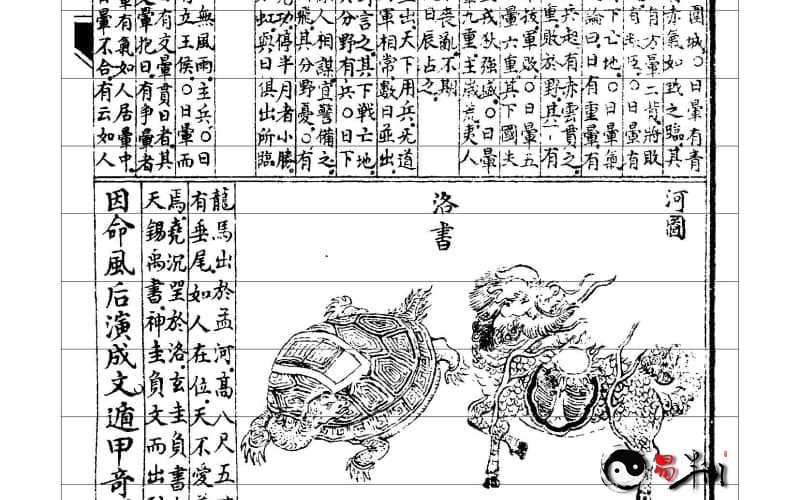 圍城○日暈有青
赤氣如之臨其
有方暈二背將敗
臣○日暈有
下亡地○日暈氣
論曰日有重暈有
兵起有赤雲貫之
重敗於野其一有
技軍敗○日暈五
暈六重其下國失
戎狄強盛○日暈
九重主歲荒夷人
喪亂不期
日辰占之
出天下用兵无道
軍相常數日並出
言之其下戰亡地
分野有兵○日下
人相謀宜警備之
飛其分野憂○有
功停半月者小勝
虹與日俱出所臨
無風雨主兵○日
有立王侯○日暈而
有交暈貫日者其
暈抱日有爭暈者
暈有氣如人居暈中
日暈不合有云如人
河圖
洛書
龍馬出於孟河高八尺五
有垂尾如人在位天不愛
焉堯沉璧於洛玄圭負書
天錫禹書神圭負文而出
因命風后演成文遁甲奇
易